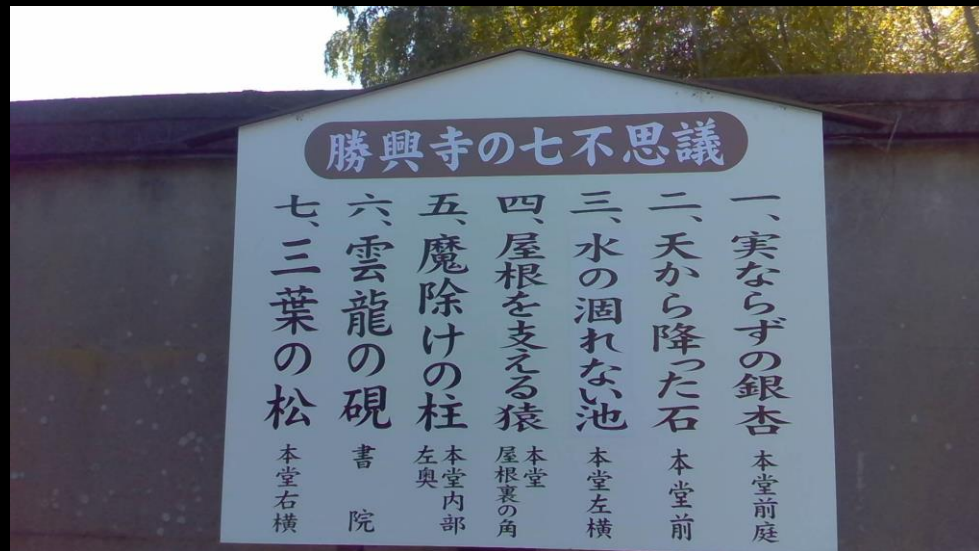 勝興寺の七不思議
一、実ならずの銀杏 本堂前庭
二、天から降った石 本堂前
三、水の涸れない池 本堂左横
四、屋根を支える猿 本堂
屋根裏の角
五、魔除けの柱 本堂内部
左奥
六、雲龍の硯 書院
七、三葉の松 本堂右横